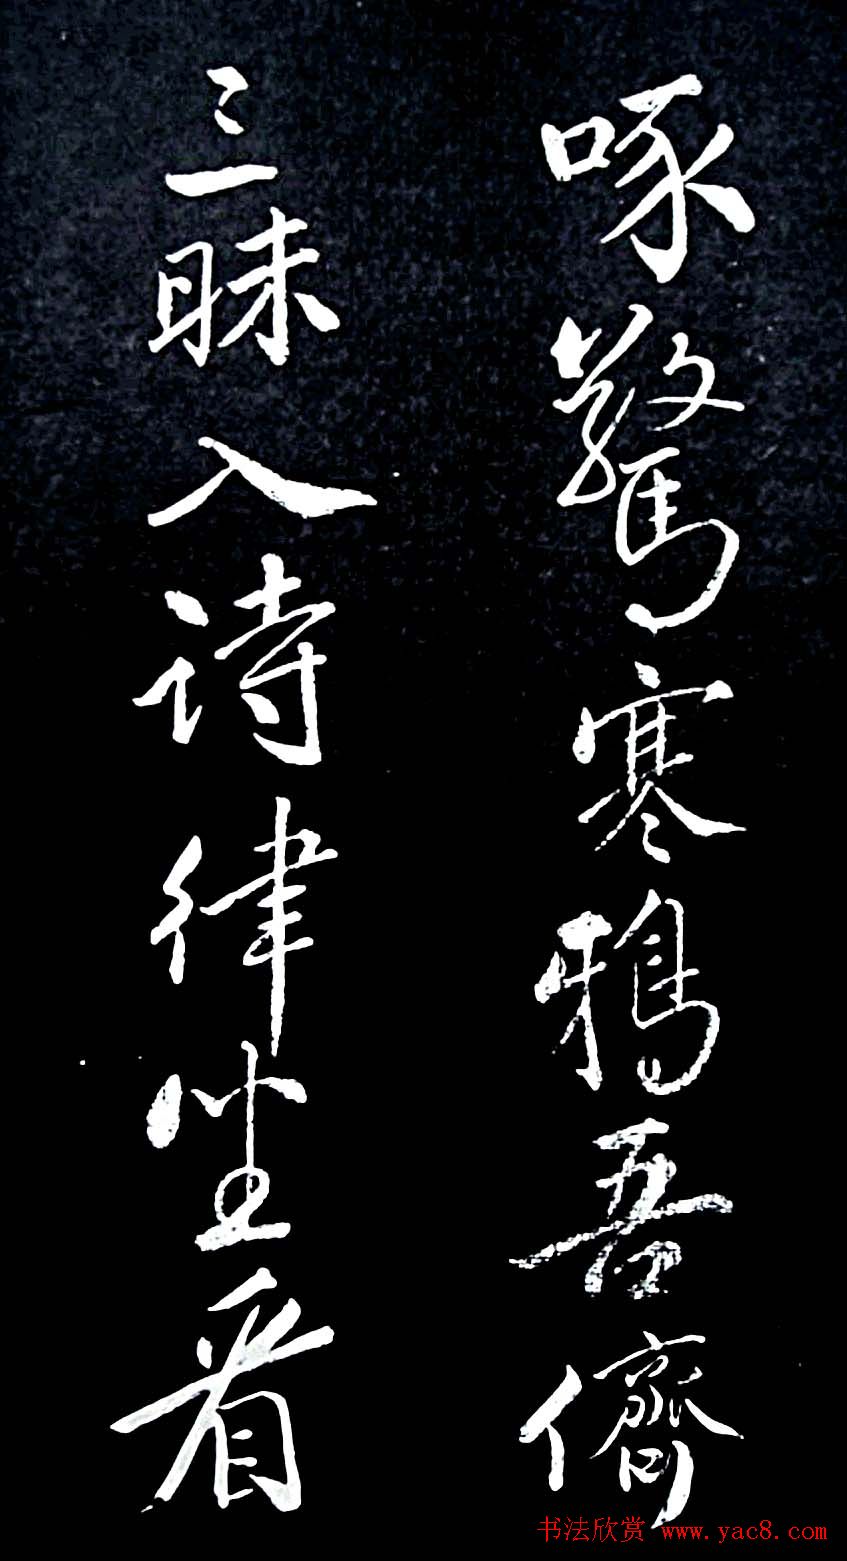 啄驚寒鴉吾儕
三昧入诗律坐看
书法欣赏 www.yac8.com